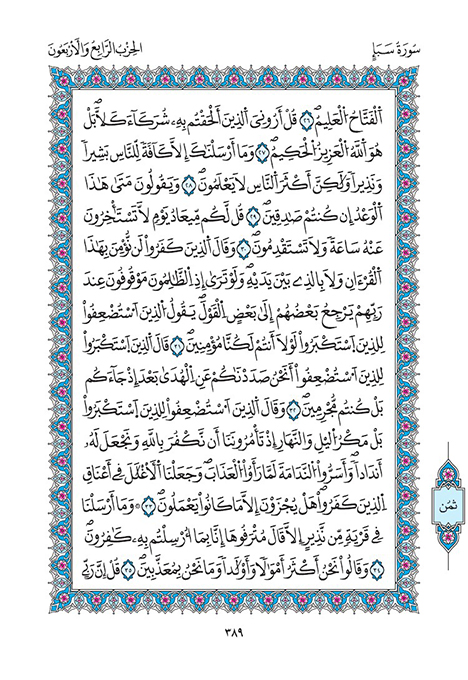 سُورَةُ سَبَإٍ
الحِزْبُ الرَّابِعُ وَالأَرْبَعُونَ
اَ۬لْفَتَّاحُ اُ۬لْعَلِيمُۖ ٢٦ قُلْ أَرُونِيَ اَ۬لذِينَ أَلْحَقْتُم بِهِۦ شُرَكَآءَ كَلَّاۖ بَلْ
هُوَ اَ۬للَّهُ اُ۬لْعَزِيزُ اُ۬لْحَكِيمُۖ ٢٧ وَمَآ أَرْسَلْنَٰكَ إِلَّا كَآفَّةً لِّلنَّاسِ بَشِيراً
وَنَذِيراً وَلَٰكِنَّ أَكْثَرَ اَ۬لنَّاسِ لَا يَعْلَمُونَۖ ٢٨ وَيَقُولُونَ مَتَىٰ هَٰذَا
اَ۬لْوَعْدُ إِن كُنتُمْ صَٰدِقِينَۖ ٢٩ قُل لَّكُم مِّيعَادُ يَوْمٍ لَّا تَسْتَٰٔخِرُونَ
عَنْهُ سَاعَةً وَلَا تَسْتَقْدِمُونَۖ ٣٠ وَقَالَ اَ۬لذِينَ كَفَرُواْ لَن نُّؤْمِنَ بِهَٰذَا
اَ۬لْقُرْءَانِ وَلَا بِالذِے بَيْنَ يَدَيْهِۖ وَلَوْ تَرَىٰٓ إِذِ اِ۬لظَّٰلِمُونَ مَوْقُوفُونَ عِندَ
رَبِّهِمْ يَرْجِعُ بَعْضُهُمْ إِلَىٰ بَعْضٍ اِ۬لْقَوْلَۖ يَقُولُ اُ۬لذِينَ اَ۟سْتُضْعِفُواْ
لِلذِينَ اَ۪سْتَكْبَرُواْ لَوْلَآ أَنتُمْ لَكُنَّا مُؤْمِنِينَۖ ٣١ قَالَ اَ۬لذِينَ اَ۪سْتَكْبَرُواْ
لِلذِينَ اَ۟سْتُضْعِفُوٓاْ أَنَحْنُ صَدَدْنَٰكُمْ عَنِ اِ۬لْهُدَىٰ بَعْدَ إِذْ جَآءَكُم
بَلْ كُنتُم مُّجْرِمِينَۖ ٣٢ وَقَالَ اَ۬لذِينَ اَ۟سْتُضْعِفُواْ لِلذِينَ اَ۪سْتَكْبَرُواْ
بَلْ مَكْرُ اُ۬ليْلِ وَالنَّهارِ إِذْ تَأْمُرُونَنَآ أَن نَّكْفُرَ بِاللَّهِ وَنَجْعَلَ لَهُۥٓ
أَندَاداًۖ وَأَسَرُّواْ اُ۬لنَّدَامَةَ لَمَّا رَأَوُاْ اُ۬لْعَذَابَۖ وَجَعَلْنَا اَ۬لْأَغْلَٰلَ فِےٓ أَعْنَاقِ
اِ۬لذِينَ كَفَرُواْۖ هَلْ يُجْزَوْنَ إِلَّا مَا كَانُواْ يَعْمَلُونَۖ ٣٣ وَمَآ أَرْسَلْنَا
فِے قَرْيَةٍ مِّن نَّذِيرٍ اِلَّا قَالَ مُتْرَفُوهَآ إِنَّا بِمَآ أُرْسِلْتُم بِهِۦ كَٰفِرُونَۖ
٣٤ وَقَالُواْ نَحْنُ أَكْثَرُ أَمْوَٰلاً وَأَوْلَٰداً وَمَا نَحْنُ بِمُعَذَّبِينَۖ ٣٥ قُلْ إِنَّ رَبِّے
ثُمُن
٣٨٩